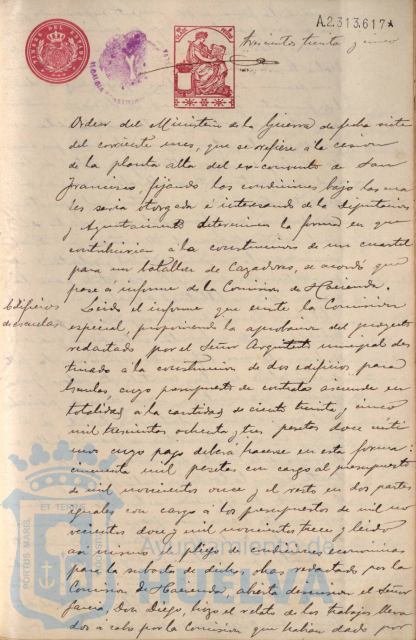 A.2.313.617*
trescientos treinta y cinco
Orden del Ministerio de la Guerra de fecha siete
del corriente mes, que se refiere a la cesion
de la planta alta del ex-convento de San
Francisco, fijando las condiciones bajo las cua
les seria otorgada é interesando de la Diputacion
y Ayuntamiento determinen la forma en que
contribuirian á la construccion de un cuartel
para un batallon de Cazadores, se acordó que
pase á informe de la Comision de Hacienda.
Edificios
de escuelas
Leido el informe que emite la Comision
especial, proponiendo la aprobacion del proyecto
redactado por el Señor Arquitecto municipal des
tinado a la construccion de dos edificios para
Escuelas, cuyo presupuesto de contrata asciende en
totalidad á la cantidad de ciento treinta y cinco
mil trescientos ochenta y tres pesetas doce centi
mos cuyo pago deberá hacerse en esta forma:
cincuenta mil pesetas con cargo al presupuesto
de mil novecientos once y el resto en dos partes
iguales con cargo á los presupuestos de mil no
vecientos doce y mil novecientos trece y leido
asi mismo el pliego de condiciones economicas
para la subasta de dichas obras redactado por la
Comision de Hacienda, abierta discusion el Señor
Garcia, Don Diego, hizo el relato de los trabajos lleva
dos á cabo por la Comision que habian dado por
PORTUS MARIS ET TERRAE
Ayuntamiento de
HUELVA